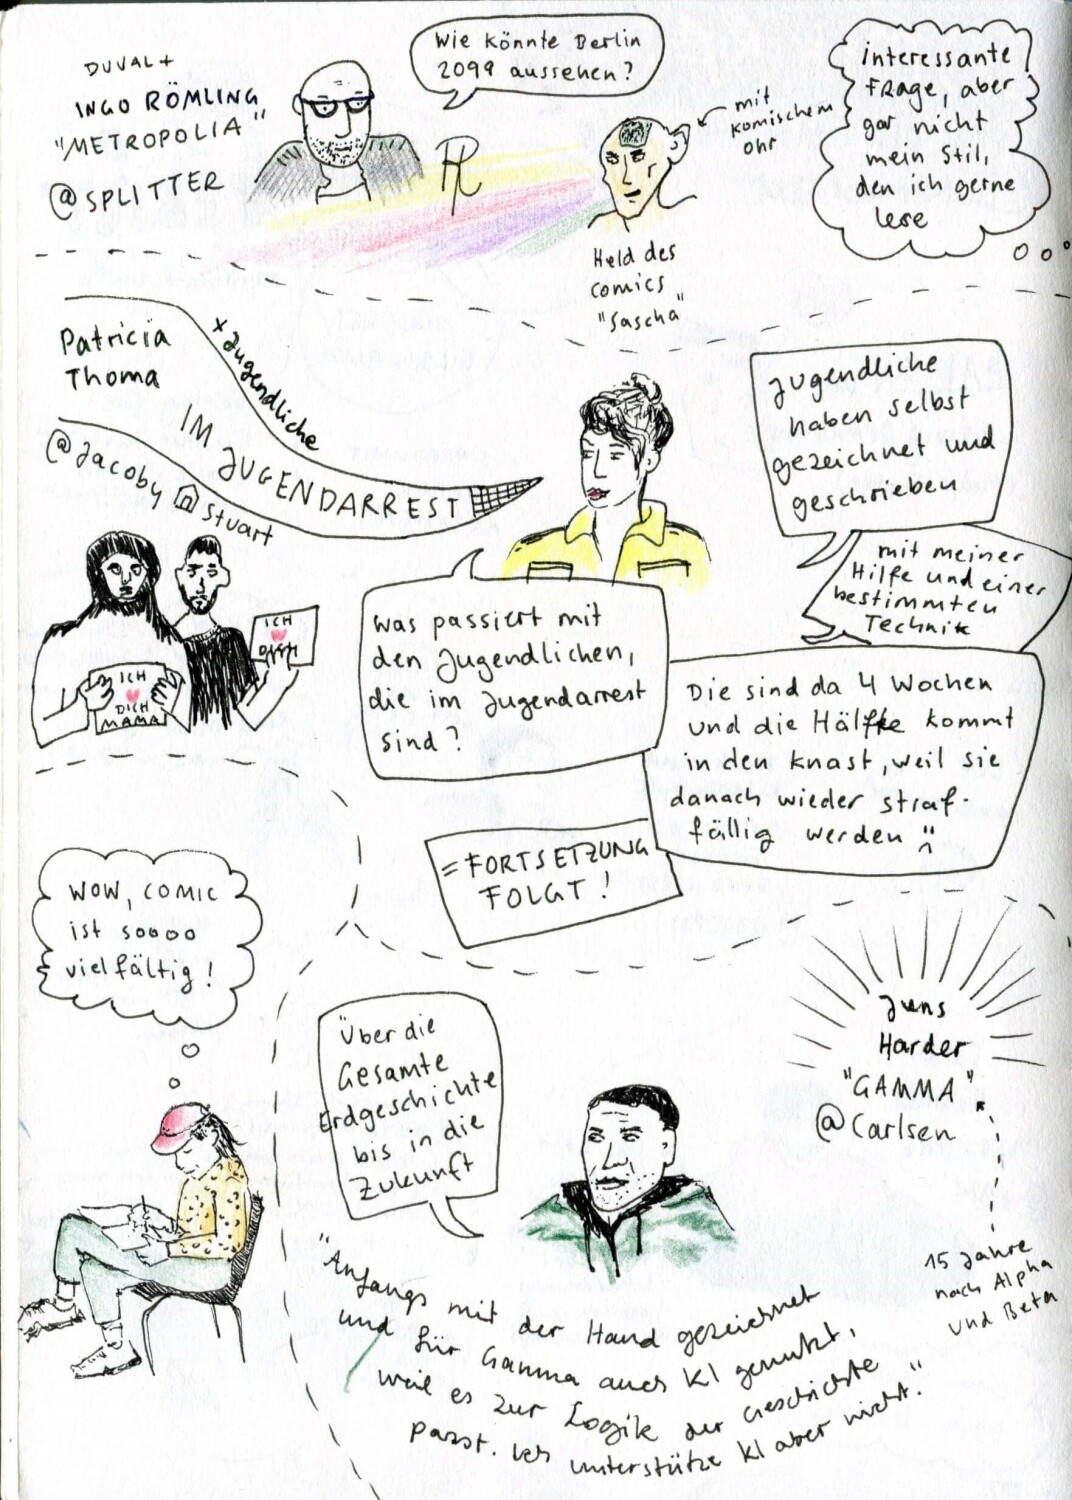 DUVAL +
INGO RÖMLING
"METROPOLIA"
@SPLITTER
Wie könnte Berlin
2099 aussehen?
mit
komischem
Ohr
Held des
Comics
"Sascha"
interessante
Frage, aber
gar nicht
mein Stil,
den ich gerne
lese
Patricia
Thoma
x Jugendliche
IM JUGENDARREST
@Jacoby Stuart
Jugendliche
haben selbst
gezeichnet und
geschrieben
mit meiner
Hilfe und einer
bestimmten
Technik
ICH
DICH
MAMA
ICH
Was passiert mit
den Jugendlichen,
die im Jugendarrest
sind?
Die sind da 4 Wochen
und die Hälfte kommt
in den Knast, weil sie
danach wieder straf-
fällig werden :(
= FORTSETZUNG
FOLGT!
WOW, COMIC
ist soooo
vielfältig!
Über die
Gesamte
Erdgeschichte
bis in die
Zukunft
Jens
Harder
"GAMMA"
@Carlsen
15 Jahre
nach Alpha
und Beta
"Anfangs mit der Hand gezeichnet
und für Gamma auch KI genutzt,
weil es zur Logik der Geschichte
passt. Ich unterstütze KI aber nicht."